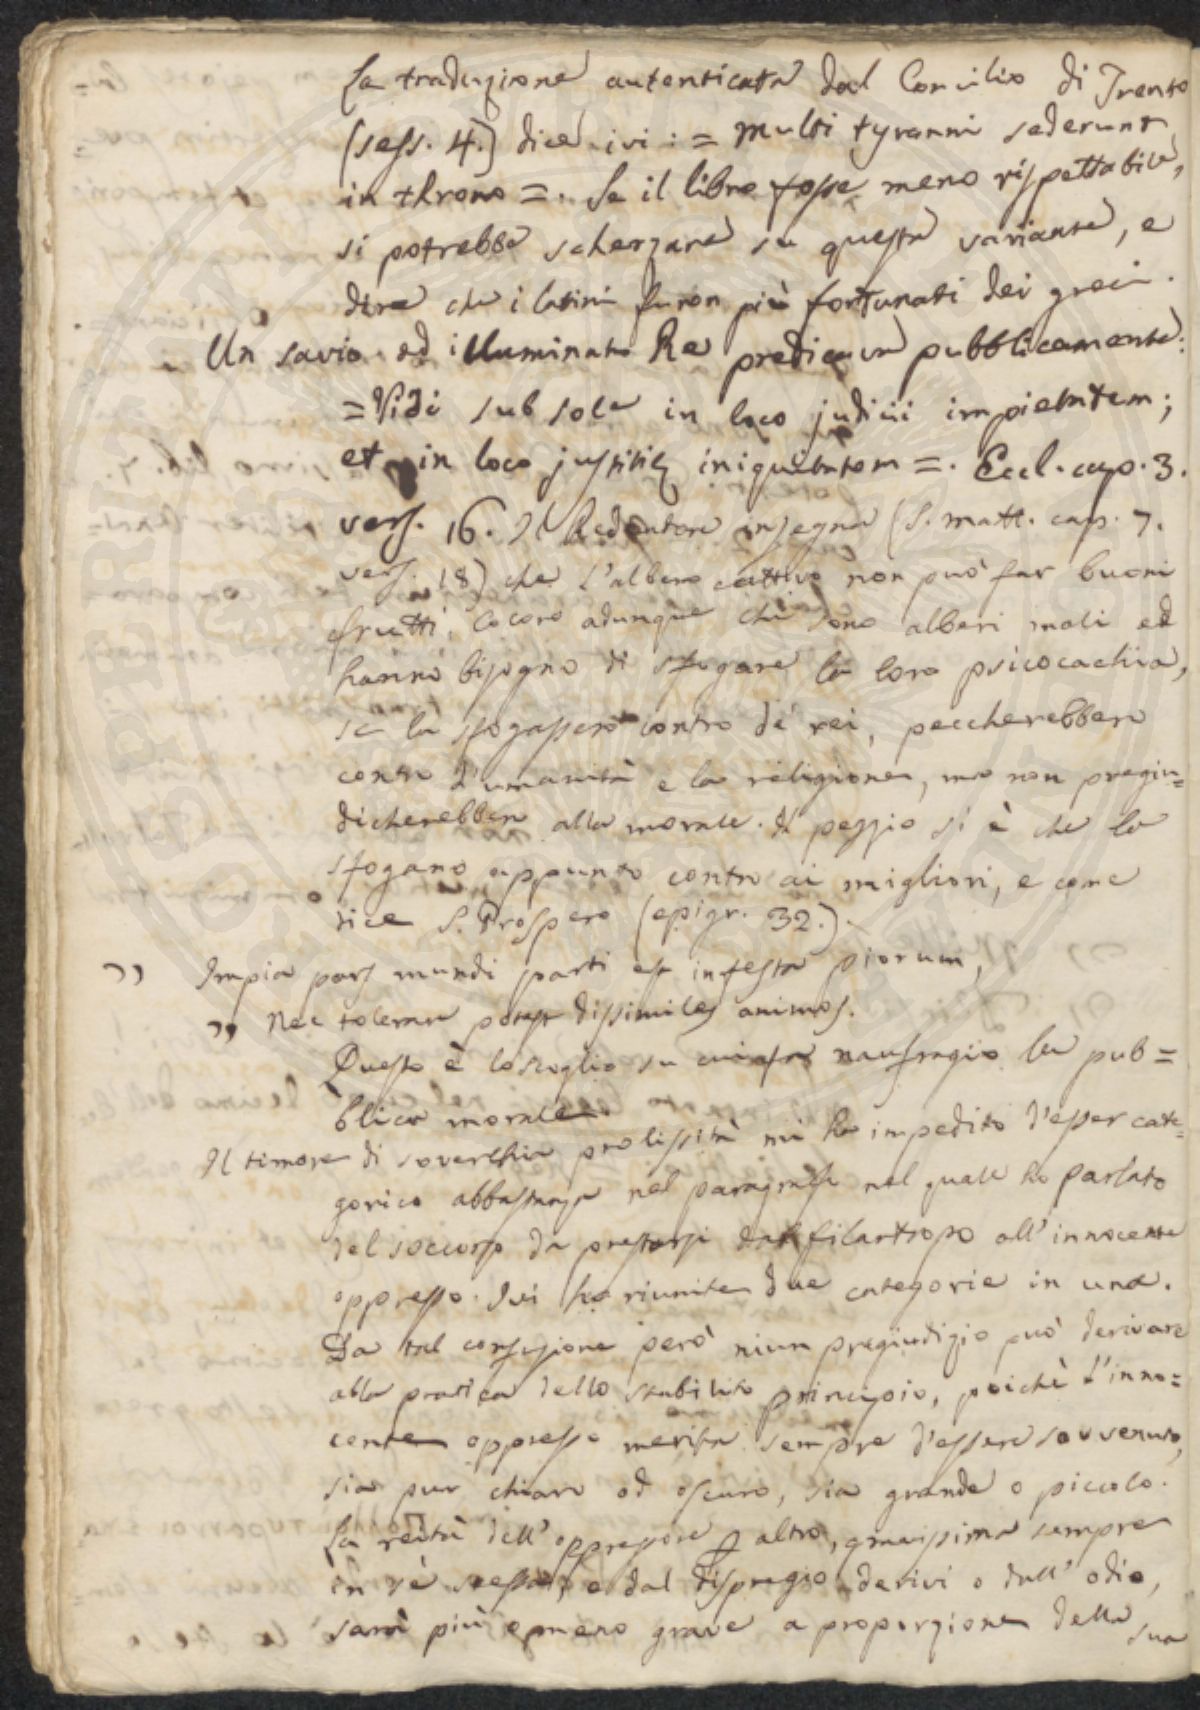 La traduzione autenticata dal Concilio di Trento
(sess. 4.) dice ivi : = multi tyranni sederunt
in throno =. Se il libro fosse meno rispettabile,
si potrebbe scherzare su questa variante, e
dire che i latini furon più fortunati dei greci.
Un savio ed illuminato Re predicava pubblicamente:
= Vidi sub sole in loco judicii impietatem;
et in loco justitiæ iniquitatem =. Eccl. cap. 3.
vers. 16. Il Redentore insegna (S. Matt. cap. 7.
vers. 18) che l'albero cattivo non può far buoni
frutti. Coloro adunque che sono alberi mali ed
hanno bisogno di sfogare la loro psicocachia,
se la sfogassero contro de' rei, peccherebbero
contro l'umanità e la religione, ma non pregiu=
dicherebbero alla morale. Il peggio si è che la
sfogano appunto contro ai migliori, e come
dice S. Prospero (epigr. 32.)
" Impia pars mundi parti est infesta piorum,
" Nec tolerare potest dissimiles animos.
Questo è lo scoglio su cui fa naufragio la pub=
blica morale.
Il timore di soverchia prolissità mi ha impedito d'esser cate=
gorico abbastanza nel paragrafo nel quale ho parlato
del soccorso da prestarsi dal filantropo all'innocente
oppresso. Ivi ho riunite due categorie in una.
Da tal confusione però niun pregiudizio può derivare
alla pratica dello stabilito principio, poichè l'inno=
cente oppresso merita sempre d'essere sovvenuto,
sia pur chiaro od oscuro, sia grande o piccolo.
La reità dell'oppressore altro, gravissima sempre
in sè stessa, e dal dispregio derivi o dall'odio,
sarà più o meno grave a proporzione della sua